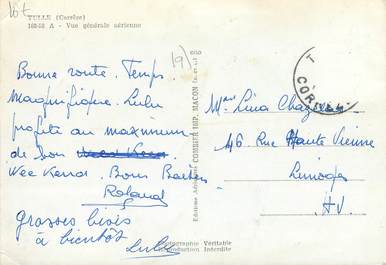 16t
TULLE (Corrèze)
162-58 A - Vue générale aérienne
19)
Bonne route. Temps
magnifique. Lulu
profite au maximum
de son
Wee Kend. Bons Baisers
Roland
Grosses bises
à bientôt
Lulu
Editions Aériennes COMBIER IMP. MACON
Photographie Véritable
Reproduction Interdite
CORRÈZE
Lina
46 Rue Haute Vienne
Limoges
HV.